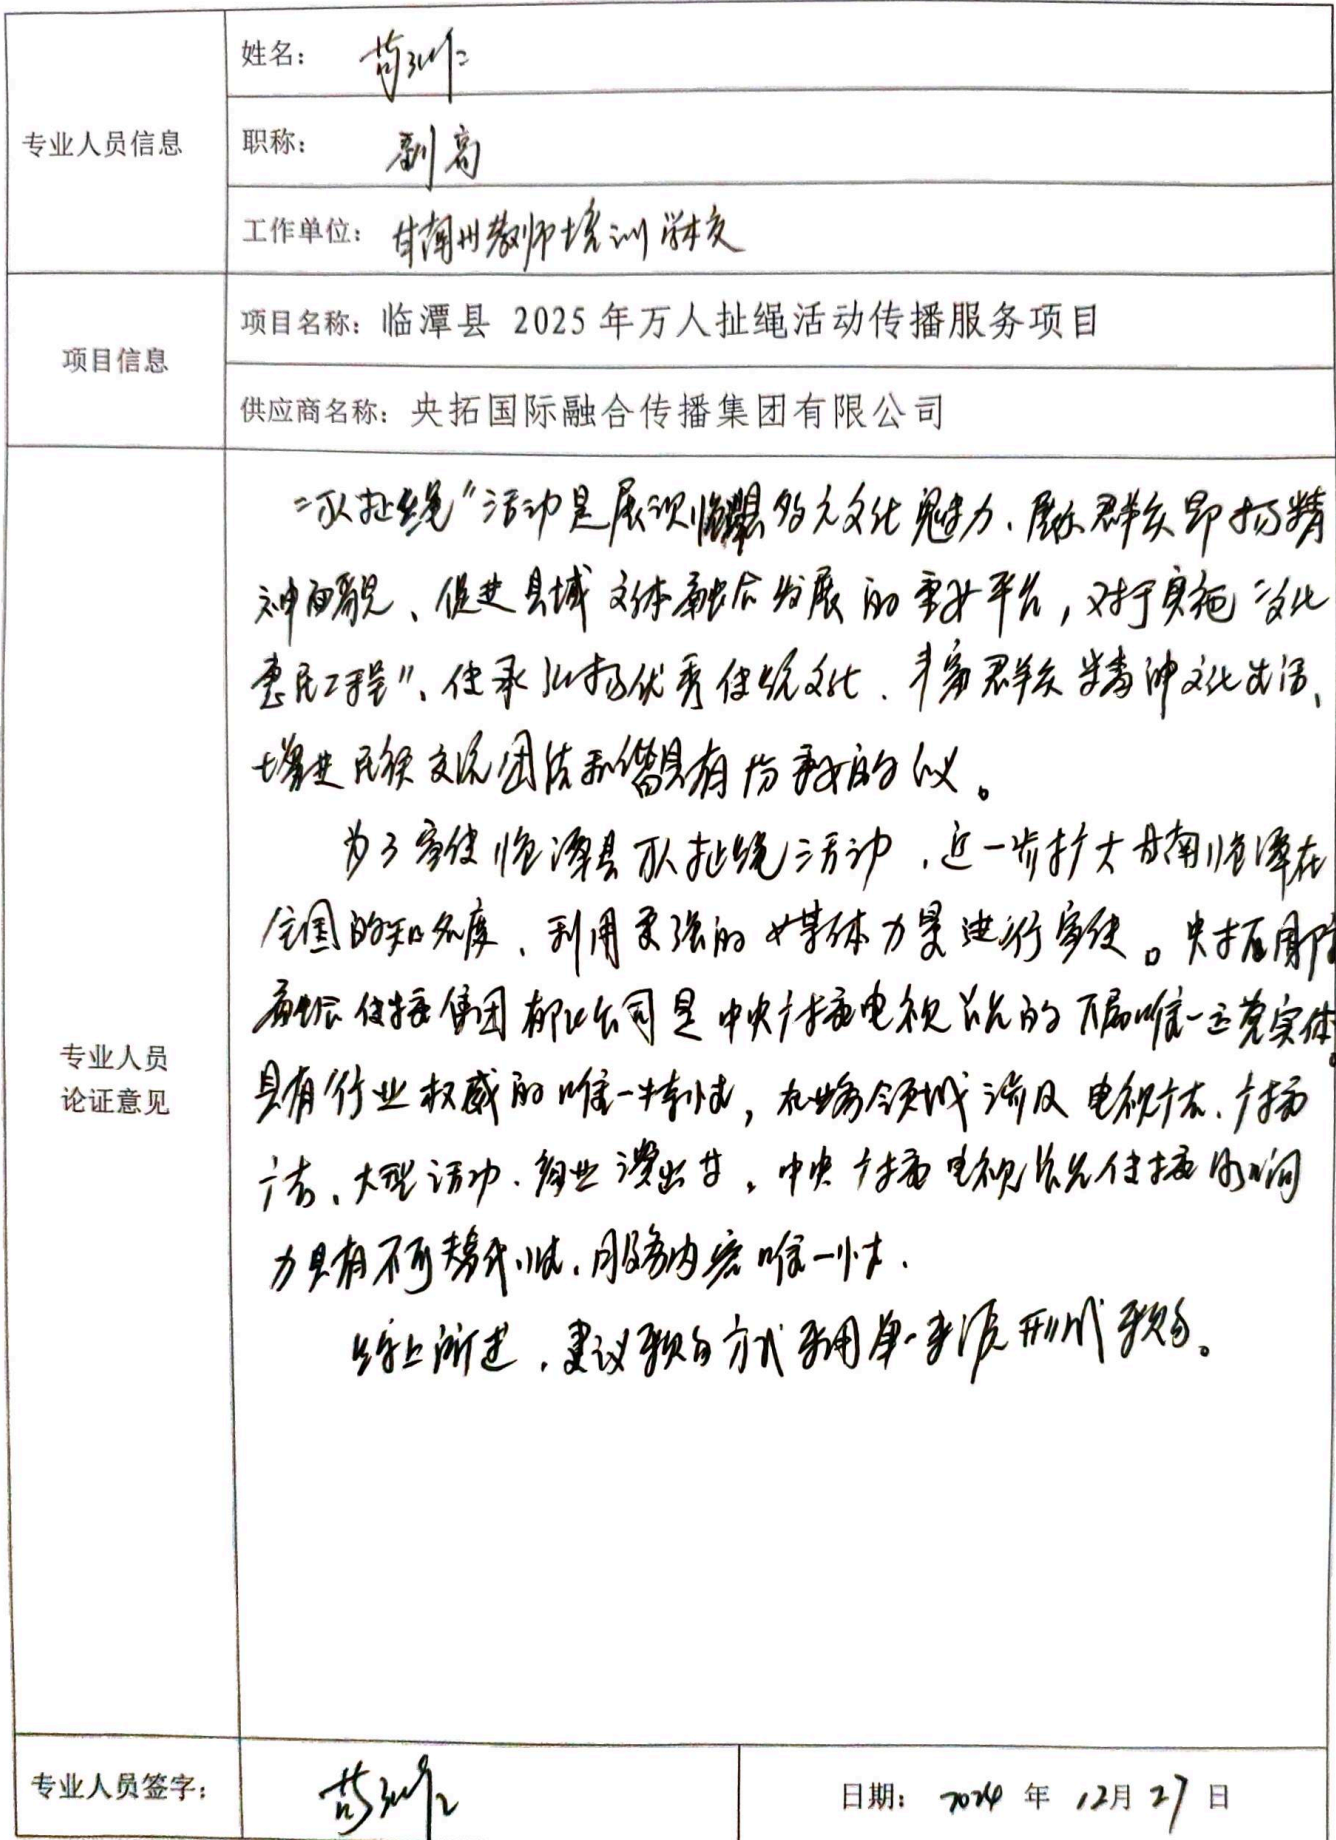 专业人员信息
姓名：
职称： 副高
工作单位： 甘南州教师培训学校
项目信息
项目名称：临潭县 2025 年万人扯绳活动传播服务项目
供应商名称：央拓国际融合传播集团有限公司
专业人员
论证意见
“万人扯绳”活动是展现临潭县多元文化魅力、展示群众昂扬精
神面貌、促进县域文体融合发展的重要平台，对于实施“文化
惠民工程”、传承弘扬优秀传统文化、丰富群众精神文化生活、
增进民族交流团结和谐具有 重要的 义。
为了宣传临潭县万人扯绳活动，近一步扩大甘南临潭在
全国的知名度、利用更强的 媒体力量进行宣传。央拓国际
融合传播集团有限公司是中央广播电视总台的下属唯一运营实体
具有行业权威的唯一特性，业务领域涉及电视广告、广播
广告、大型活动、商业演出等。中央广播电视总台传播影响
力具有不可替代性、服务内容唯一性.
综上所述，建议采购方式采用单一来源形式采购。
专业人员签字：
日期： 2024 年 12月 27 日